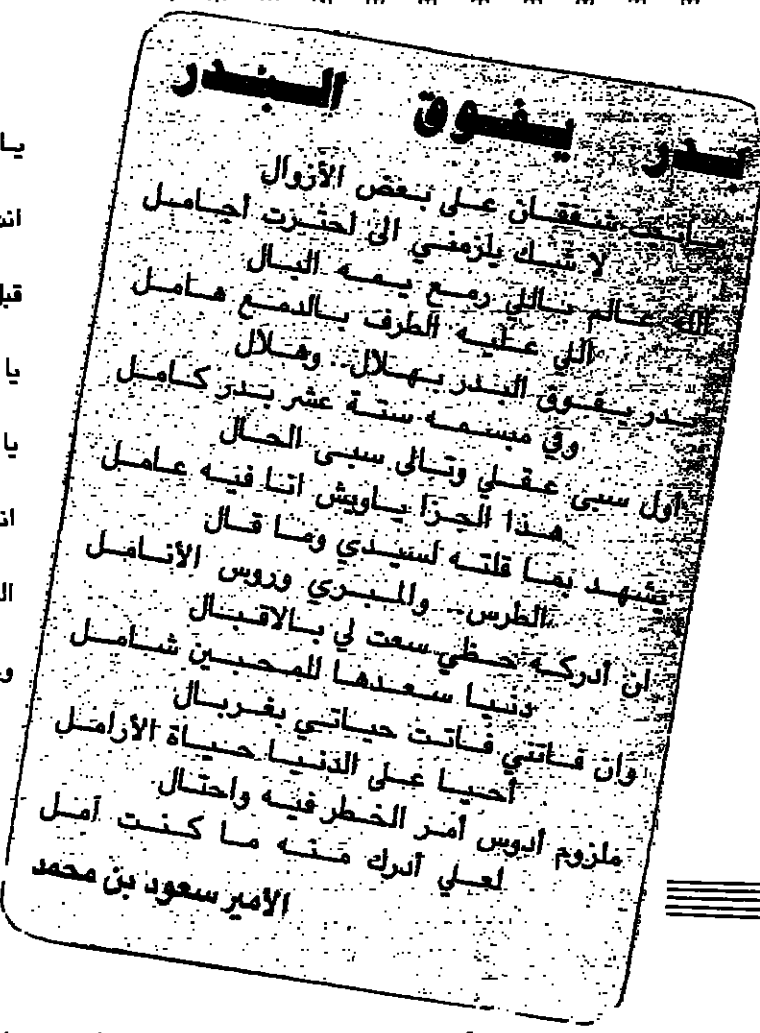 بدر يفوق البدر
شفقان على بعض الأزوال
لا شك يلزمني الى احتزت أجامل
الله عالم باللي رمع يمه البال
اللي عليه الطرف بالدمع هامل
بدر يفوق البدر بهلال.. وهلال
وفي مبسمه ستة عشر بدر كامل
أول سبى عقلي وتالى سبى الحال
هذا الجزا ياويش انا فيه عامل
يشهد بما قلته لسيدي وما قال
الطرس.. والمبري وروس الأنامل
ان أدركه حظي سعت لي بالاقبال
دنيا سعدها للمحبين شامل
وان فاتني فاتت حياتي بغربال
أحيا على الدنيا حياة الأرامل
ملزوم أدوس أمر الخطر فيه واحتال
لعلي أدرك منه ما كنت آمل
الأمير سعود بن محمد
يا
قبل
يا
يا
و